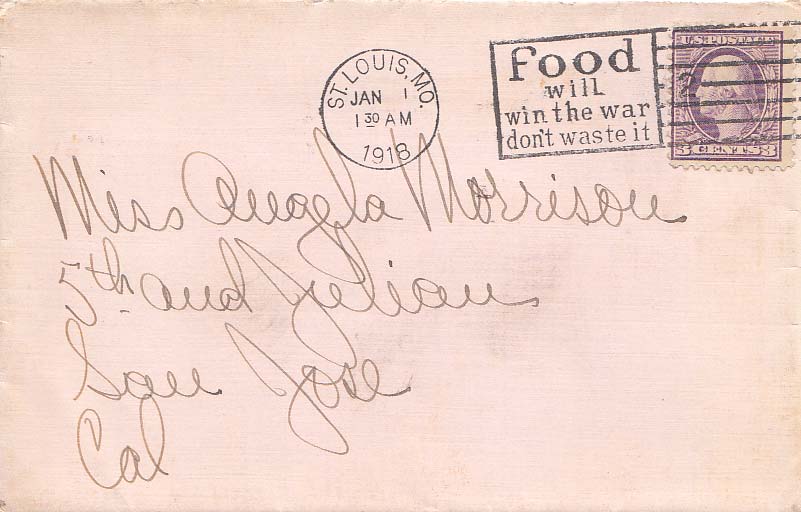 ST. LOUIS, MO.
JAN 1
1 30 AM
1918
Food
will
win the war
don't waste it
U.S. POSTAGE
3 CENTS 3
Miss Angela Morrison
5th and Julian
San Jose
Cal